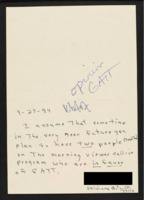 opinion
GATT
9-27-94
I assume that sometime
in the very near future you
plan to have two people
on the morning viewer call-in
program who are in favor
of GATT.